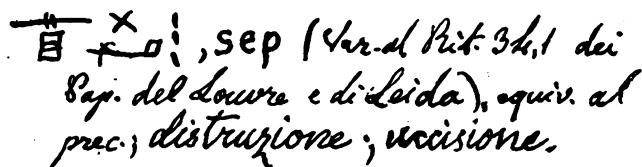 , sep (Var. al Rit. 34,1 dei
Pap. del Louvre e di Leida), equiv. al
prec.; distruzione; uccisione.